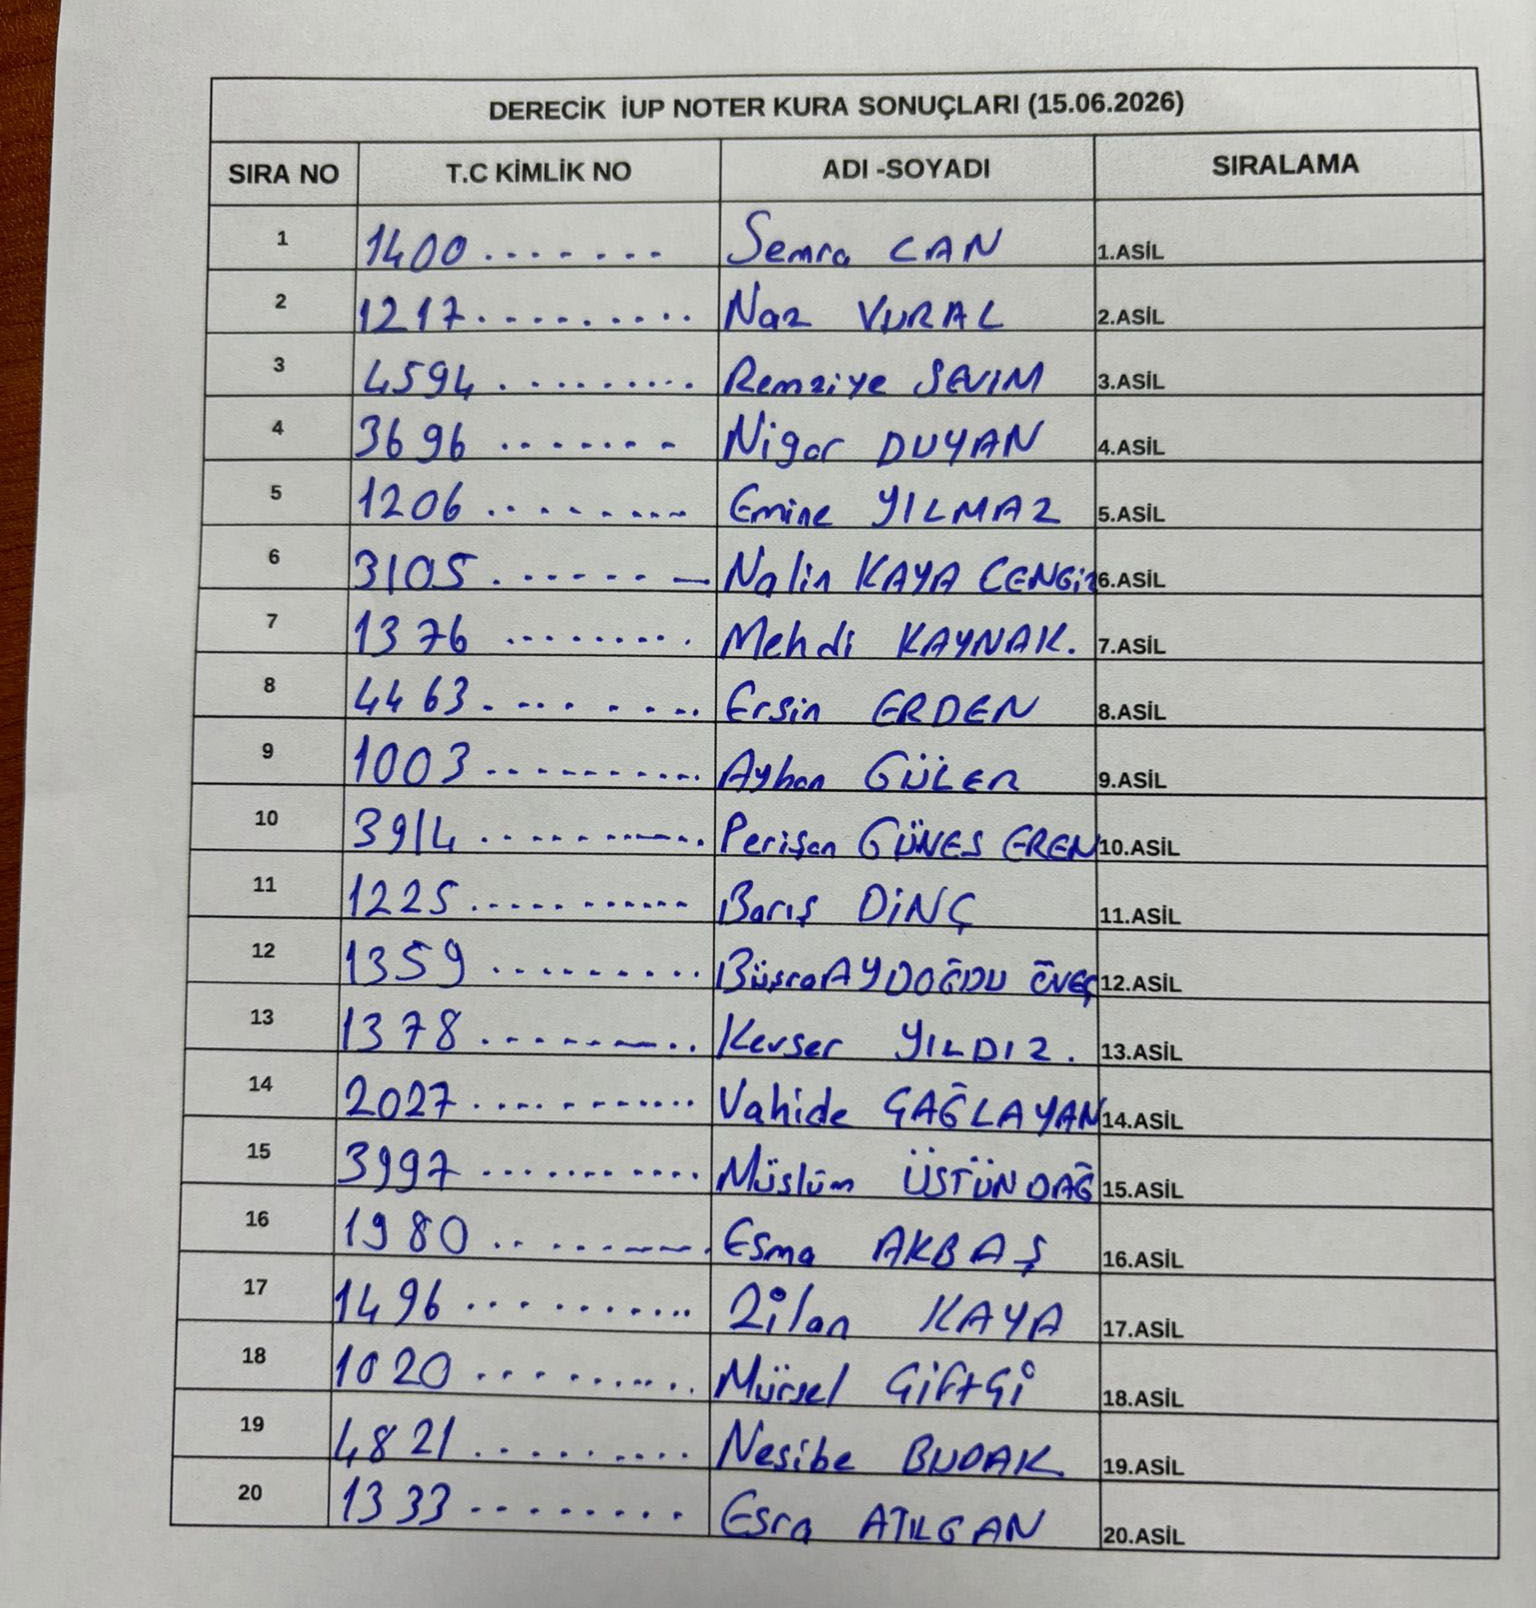 DERECİK İUP NOTER KURA SONUÇLARI (15.06.2026)
SIRA NO T.C KİMLİK NO ADI -SOYADI SIRALAMA
1 1400....... Semra CAN 1.ASİL
2 1217......... Naz VURAL 2.ASİL
3 4594......... Remziye SEVIM 3.ASİL
4 3696....... Nigar DUYAN 4.ASİL
5 1206........ Emine YILMAZ 5.ASİL
6 3105....... Nalin KAYA CENGiz 6.ASİL
7 1376........ Mehdi KAYNAK. 7.ASİL
8 4463........ Ersin ERDEN 8.ASİL
9 1003.......... Ayhan GÜLER 9.ASİL
10 3914.......... Perişan GÜNES EREN 10.ASİL
11 1225........... Barış DiNÇ 11.ASİL
12 1359......... Büşra AYDOĞDU ÖVEÇ 12.ASİL
13 1378......... Kevser YILDIZ. 13.ASİL
14 2027........... Vahide ÇAĞLAYAN 14.ASİL
15 3997........... Müslüm ÜSTÜNDAĞ 15.ASİL
16 1980......... Esma AKBAŞ 16.ASİL
17 1496.......... Zilan KAYA 17.ASİL
18 1020.......... Mürsel ÇiftÇi 18.ASİL
19 4821......... Nesibe BUDAK 19.ASİL
20 1333........ Esra ATILGAN 20.ASİL